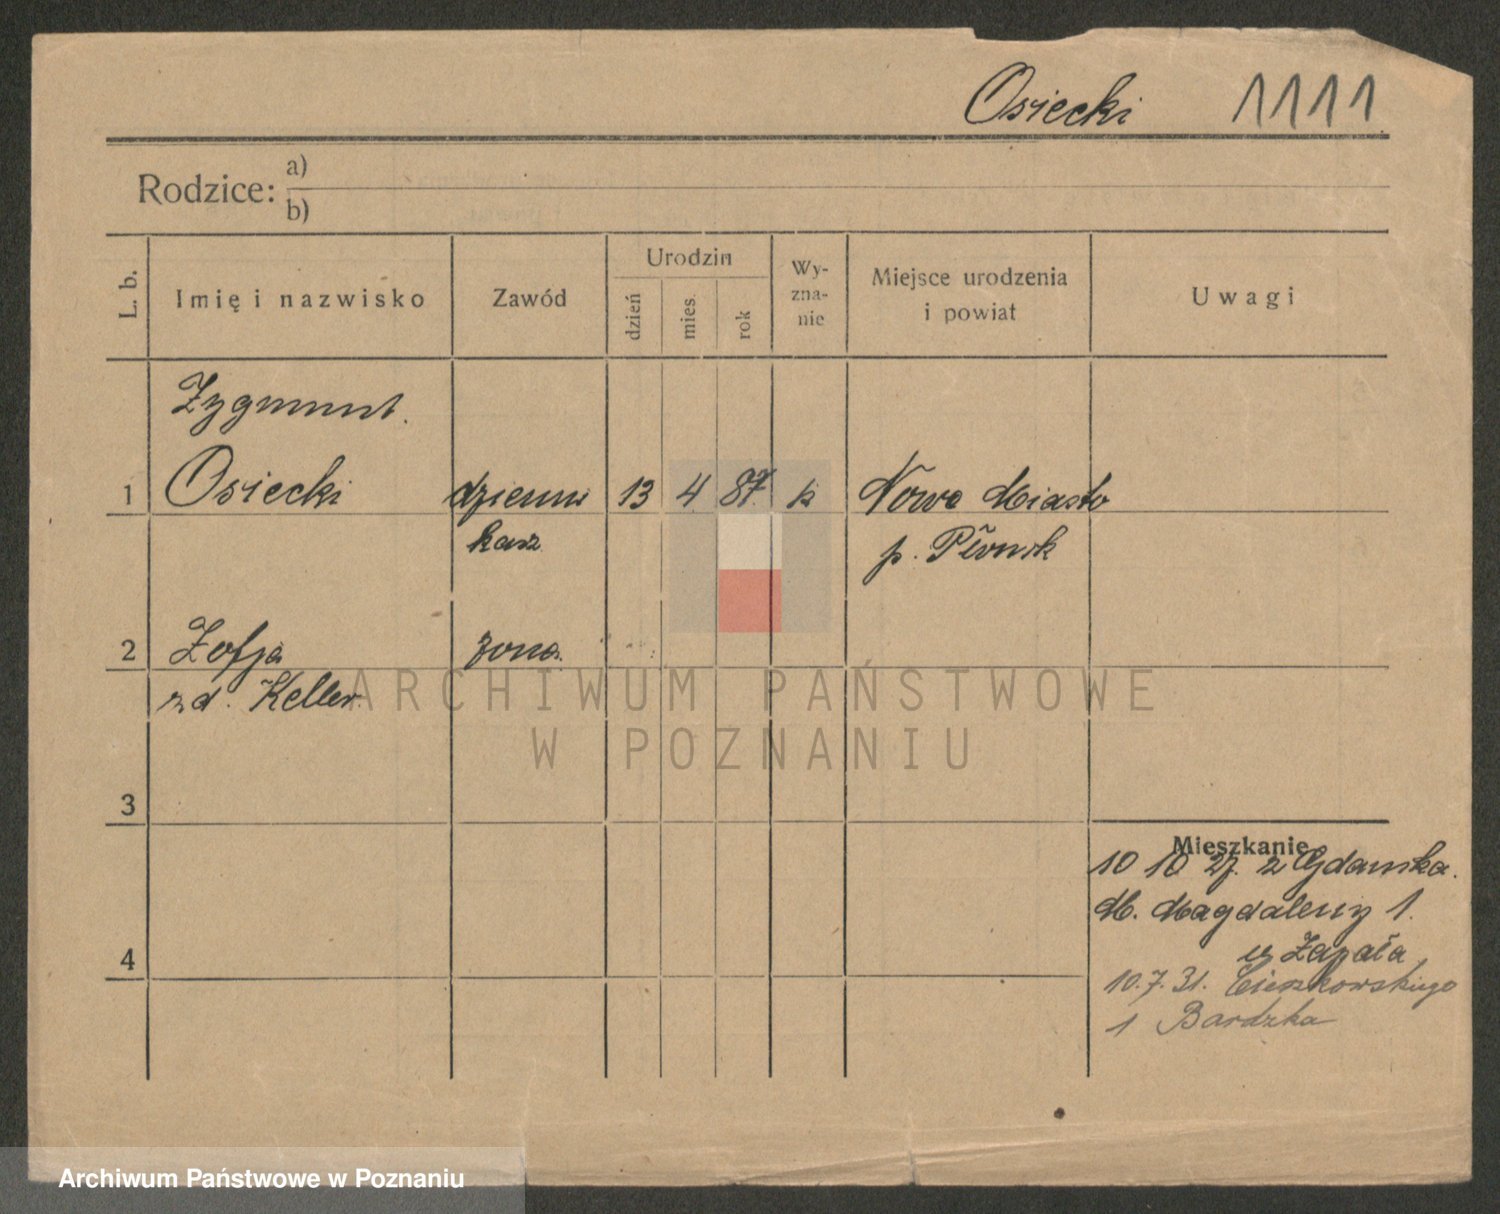 Osiecki 1111
Rodzice: a)
b)
L. b. Imię i nazwisko Zawód Urodzin dzień mies. rok Wy-zna-nie Miejsce urodzenia i powiat Uwagi
Zygmunt.
1 Osiecki dzienni 13 4 87. k Nowe Miasto
karz p. Płońsk
2 Zofja żona
zd. Keller
ARCHIWUM PAŃSTWOWE
W POZNANIU
3
Mieszkanie
10 10 27. z Gdańska.
M. Magdaleny 1.
4 u Zapała
10.7.31. Cieszkowskiego
1 Bardzka
Archiwum Państwowe w Poznaniu